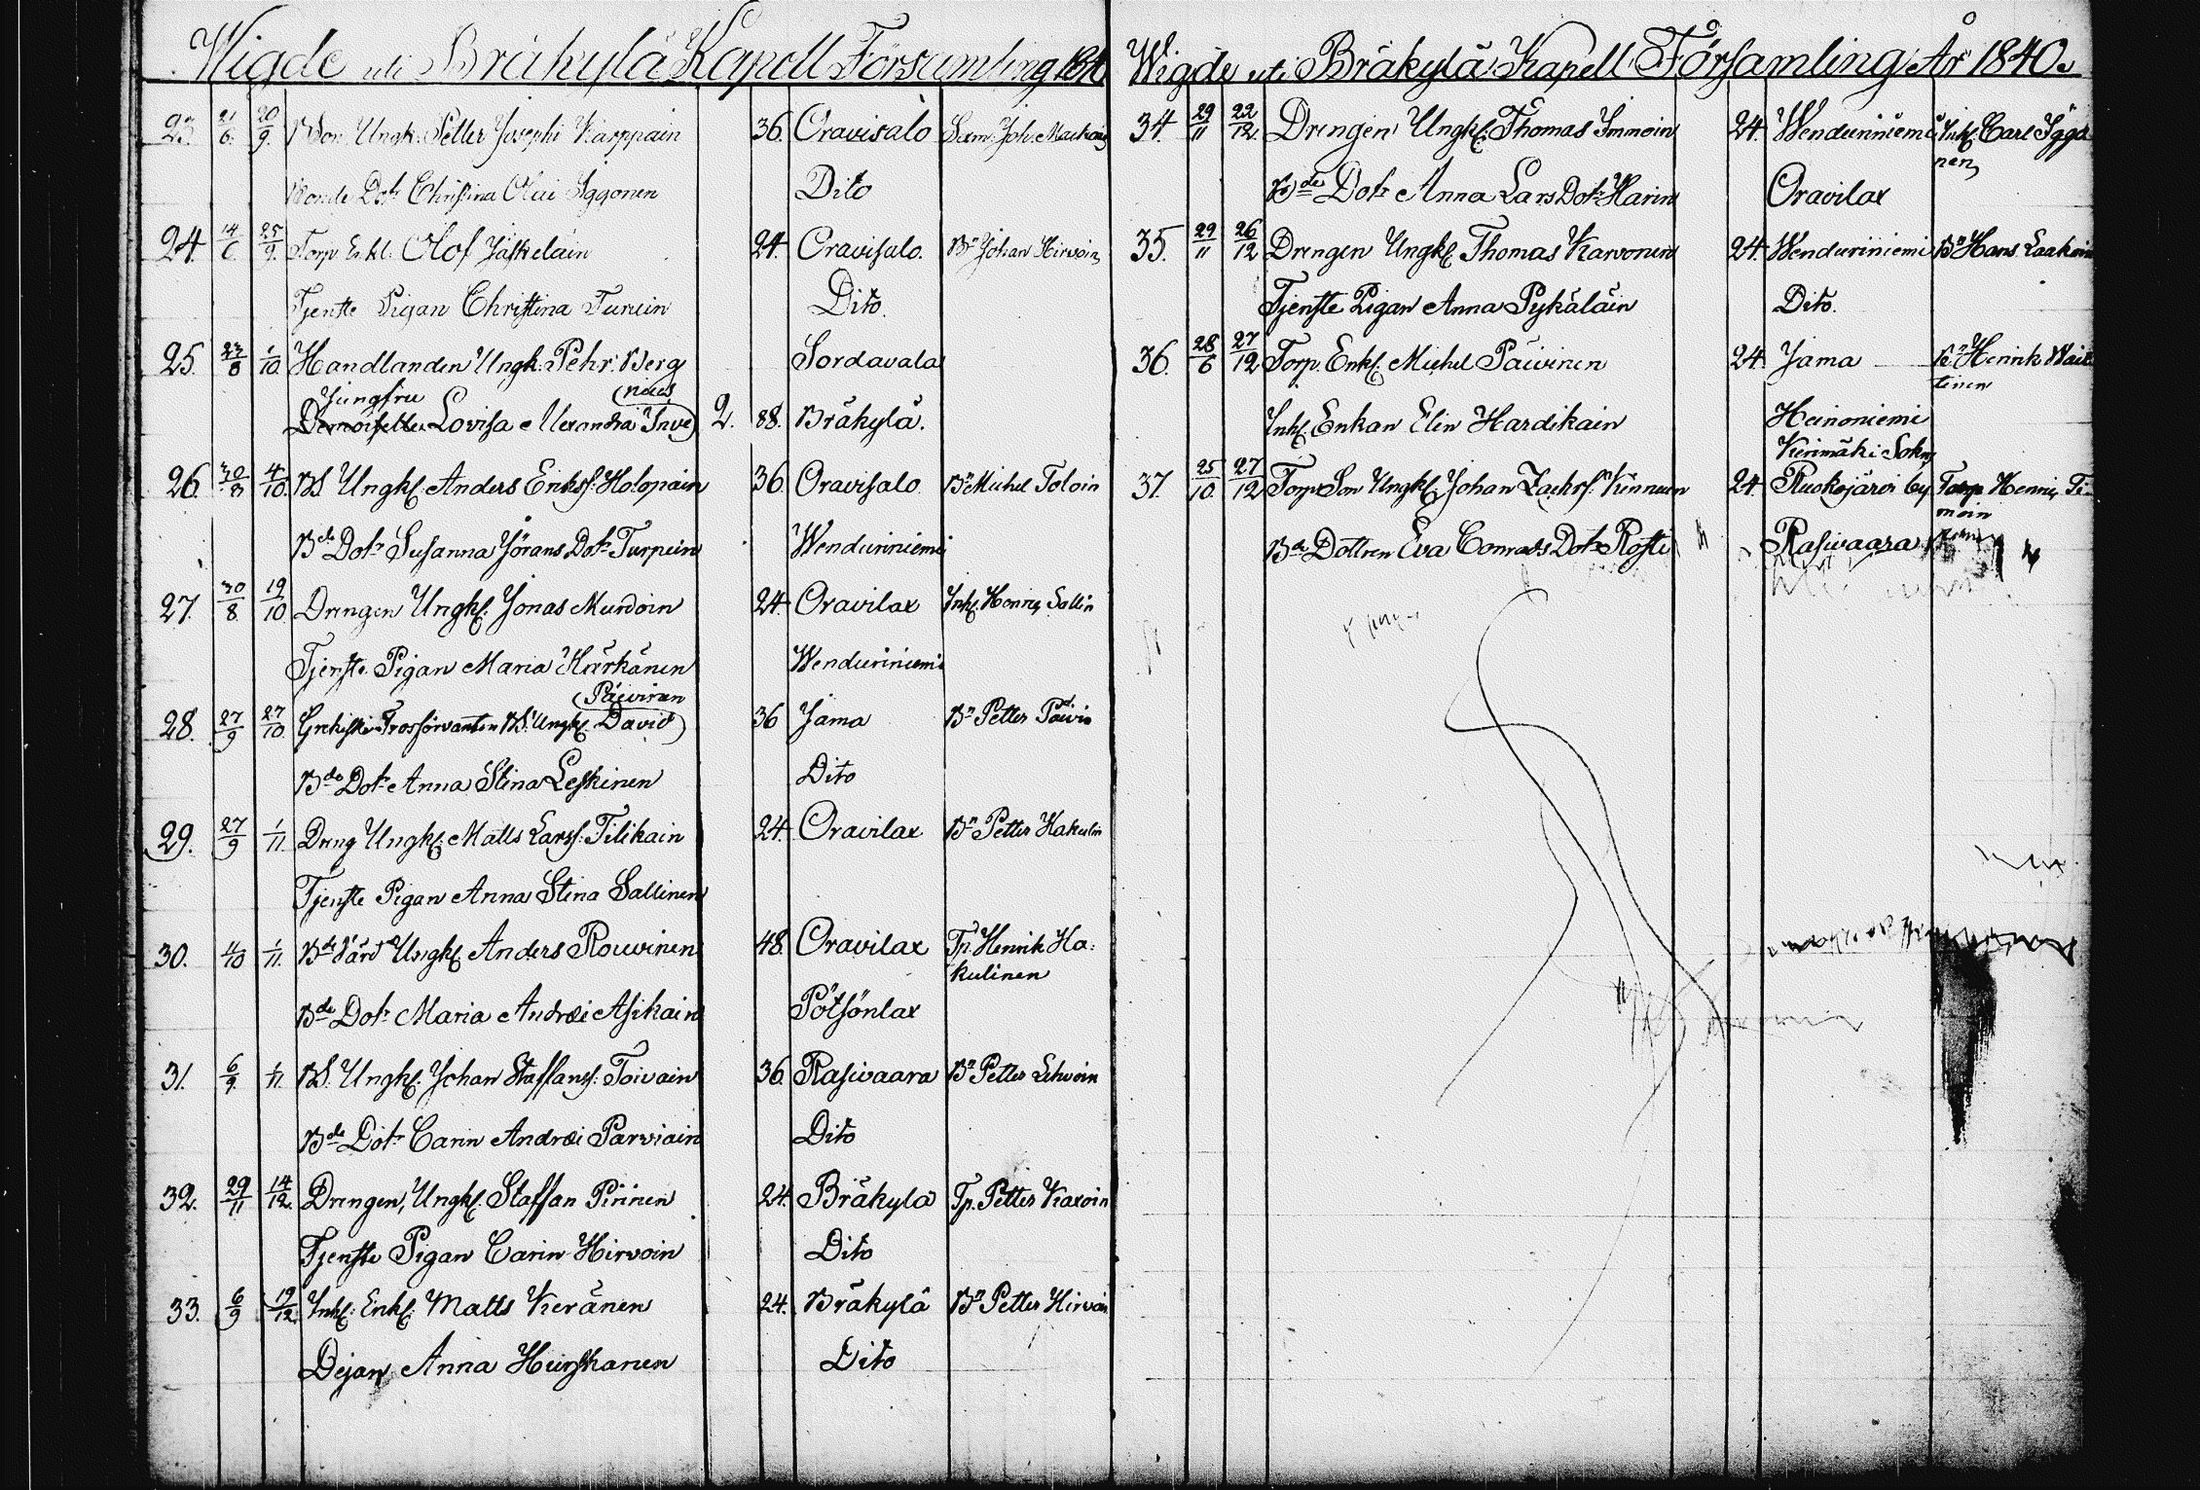 Wigde uti Bräkylä Kapell Församling 1840
23. 21/6. 20/9. BSon Ungk. Petter Josephi Karppain 36. Oravisalo
Bonde Dotr Christina Olai Iggonen Dito
24. 14/6 25/9. Torp. Enkl. Olof Jäskeläin 24. Oravisalo. Bn Johan Hirvoin
Tjenste Pigan Christina Turuin Dito.
25. 23/8 1/10. Handlanden Ungk. Pehr Berg Sordavala
Jungfru (næus
Demoiselle Lovisa Alexandra Inve) 2. 88. Bräkylä.
26. 30/8 4/10. BS. Ungkl. Anders Erikss. Holopain 36. Oravisalo Bn Michel Toloin
Bde Dotr Susanna Jörans Dotr Turpein Wenduriniemi
27. 30/8. 19/10. Drengen Ungkl. Jonas Murdoin 24. Oravilax Inh. Henric Sallin
Tjenste Pigan Maria Härkänen Wenduriniemi
(Päiviran
28. 27/9 27/10. Grekiske Trosförvanten BS. Ungkl. David) 36 Jama Bn Petter Päivin
Bde Dotr Anna Stina Leskinen Dito
29. 27/9 1/11. Dreng Ungkl. Matts Larss. Tilikain 24. Oravilax Bn Petter Hakulin
Tjenste Pigan Anna Stina Sallinen
30. 4/10 1/11. Ungkl. Anders Rouvinen 48. Oravilax Tp. Henrik Ha:
kulinen
Bde Dotr Maria Andræi Asikain Pötsönlax
31. 6/9. 1/11. BS. Ungkl. Johan Staffanss. Toivain 36. Rasivaara Bn Petter Lihvoin
Bde Dotr Carin Andræi Parviain Dito
32. 29/11 14/12. Drengen, Ungkl. Staffan Pirinen 24. Bräkylä Tp. Petter Karvoin
Tjenste Pigan Carin Hirvoin Dito
33. 6/9 19/12. Inh. Enkl. Matts Keränen 24. Bräkylä Bn Petter Hirvoin
Dejan Anna Hurskanen Dito
Wigde uti Bräkylä Kapell Församling År 1840.
34. 29/11 22/12. Drengen Ungkl. Thomas Immoin 24. Wenduriniemi Inh. Carl Iggo
nen
Bde Dotr Anna Lars Dotr Harin Oravilax
35. 29/11 26/12 Drengen Ungkl. Thomas Karvonen 24. Wenduriniemi Bn Hans Laakoin
Tjenste Pigan Anna Pykäläin Dito.
36. 28/6 27/12 Torp. Enkl. Michel Päivinen 24. Jama Bn Henrik Wäit
tinen
Inh. Enkan Elin Hardikain Heinoniemi
Kerimäki Sokn
37. 25/10. 27/12 Torp. Son Ungkl. Johan Zachrs. Kinnuen 24. Ruokojärvi by Torp. Henric Ti
moin
Bde Dottren Eva Conrads Dotr Rosti Rasivaara